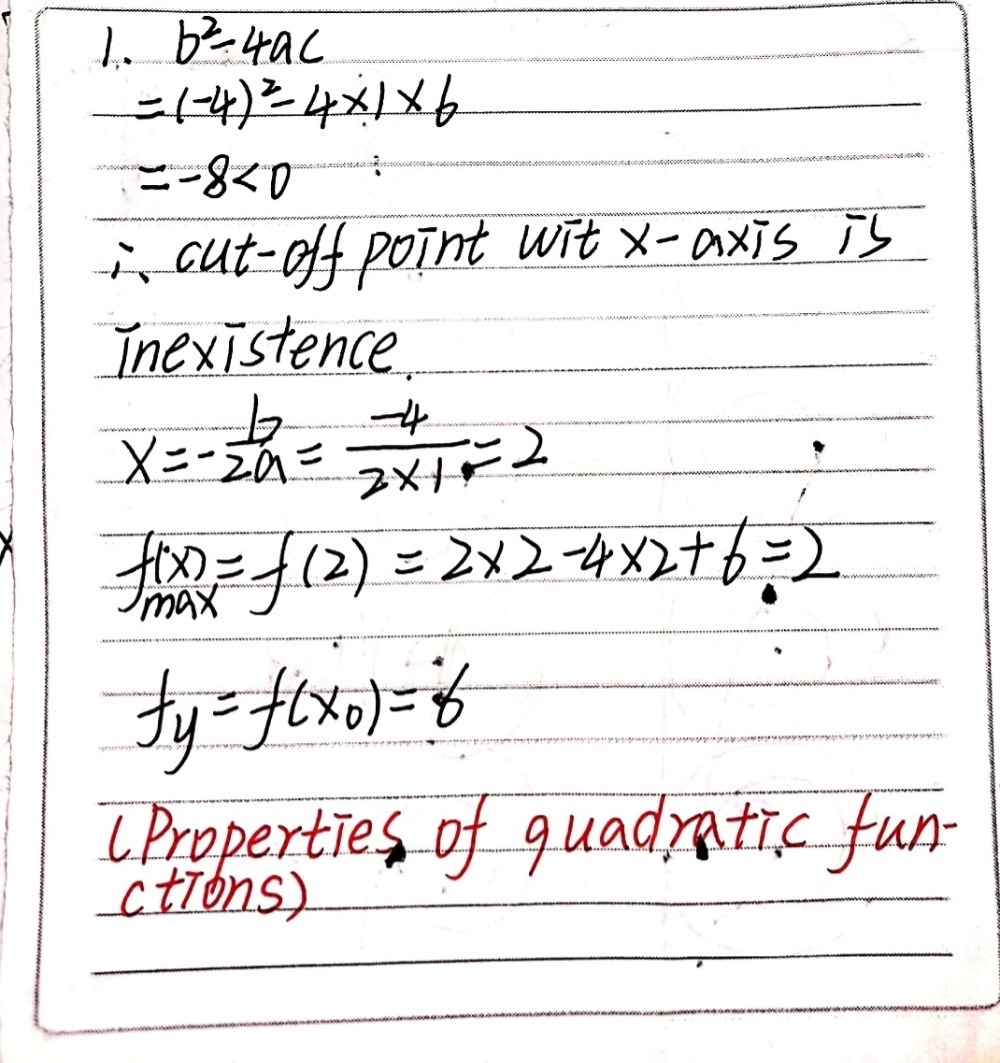 1. b²-4ac
=(-4)²-4×1×6
=-8<0
∴ cut-off point wit x-axis is
inexistence.
x=-b/2a=-4/2×1=2
f(x)max=f(2)=2×2-4×2+6=2
fy=f(x₀)=6
(Properties of quadratic fun-
ctions)